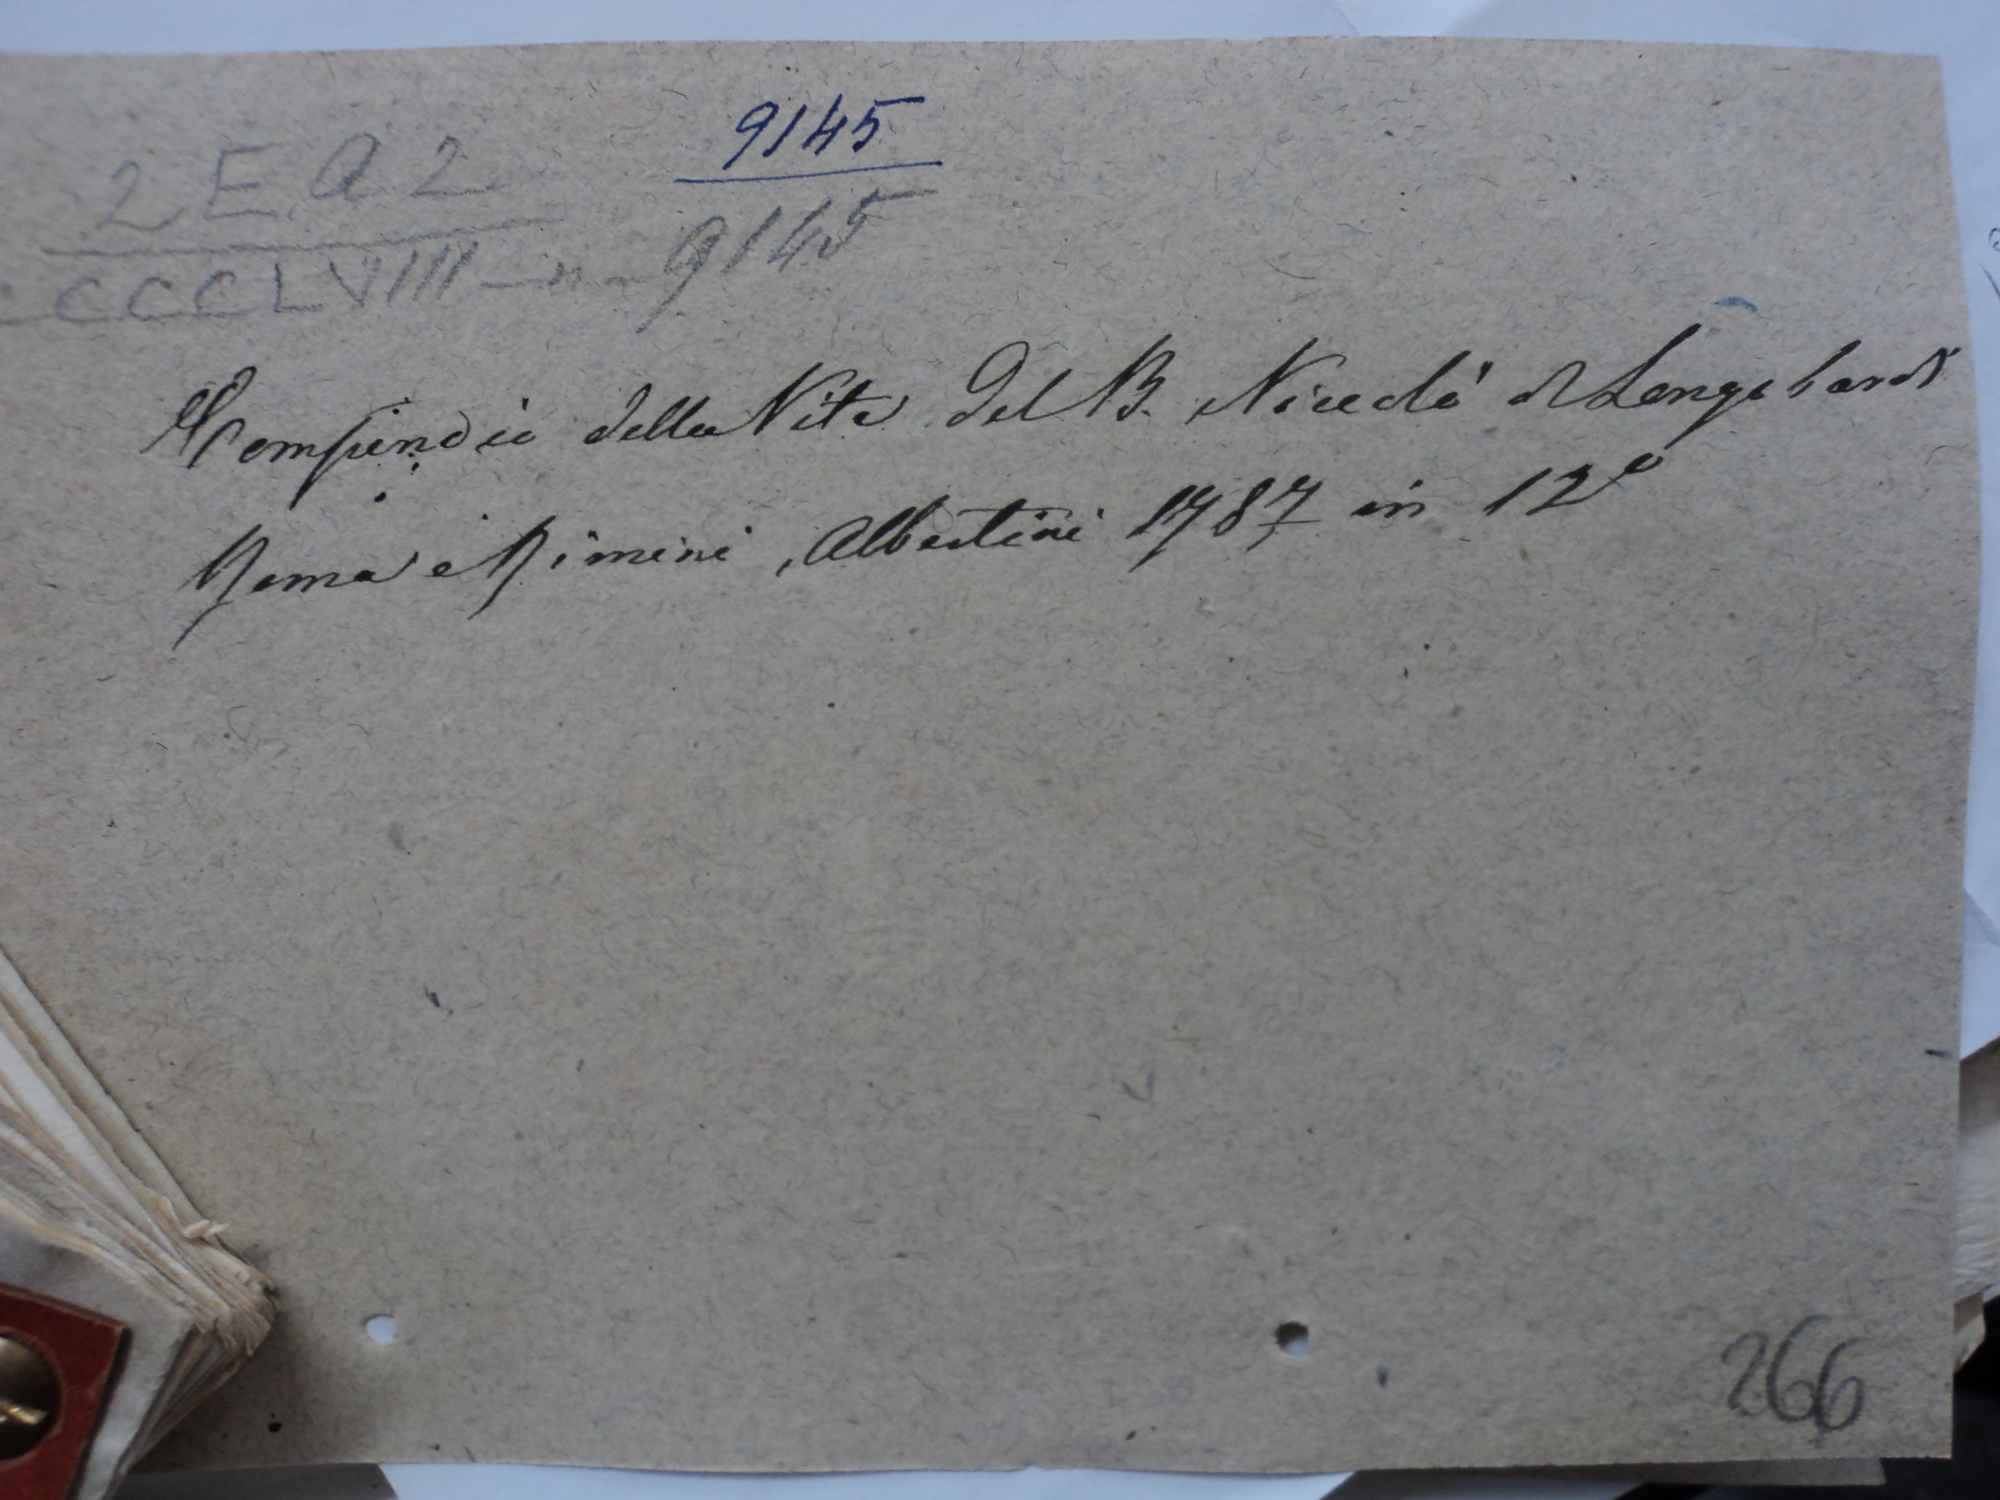 9145
2 E. A 2
CCCLVIII - n - 9145
Compendio della Vita del B. Niccolò di Longobardi
Roma e Rimini, Albertini 1787 in 12º
266